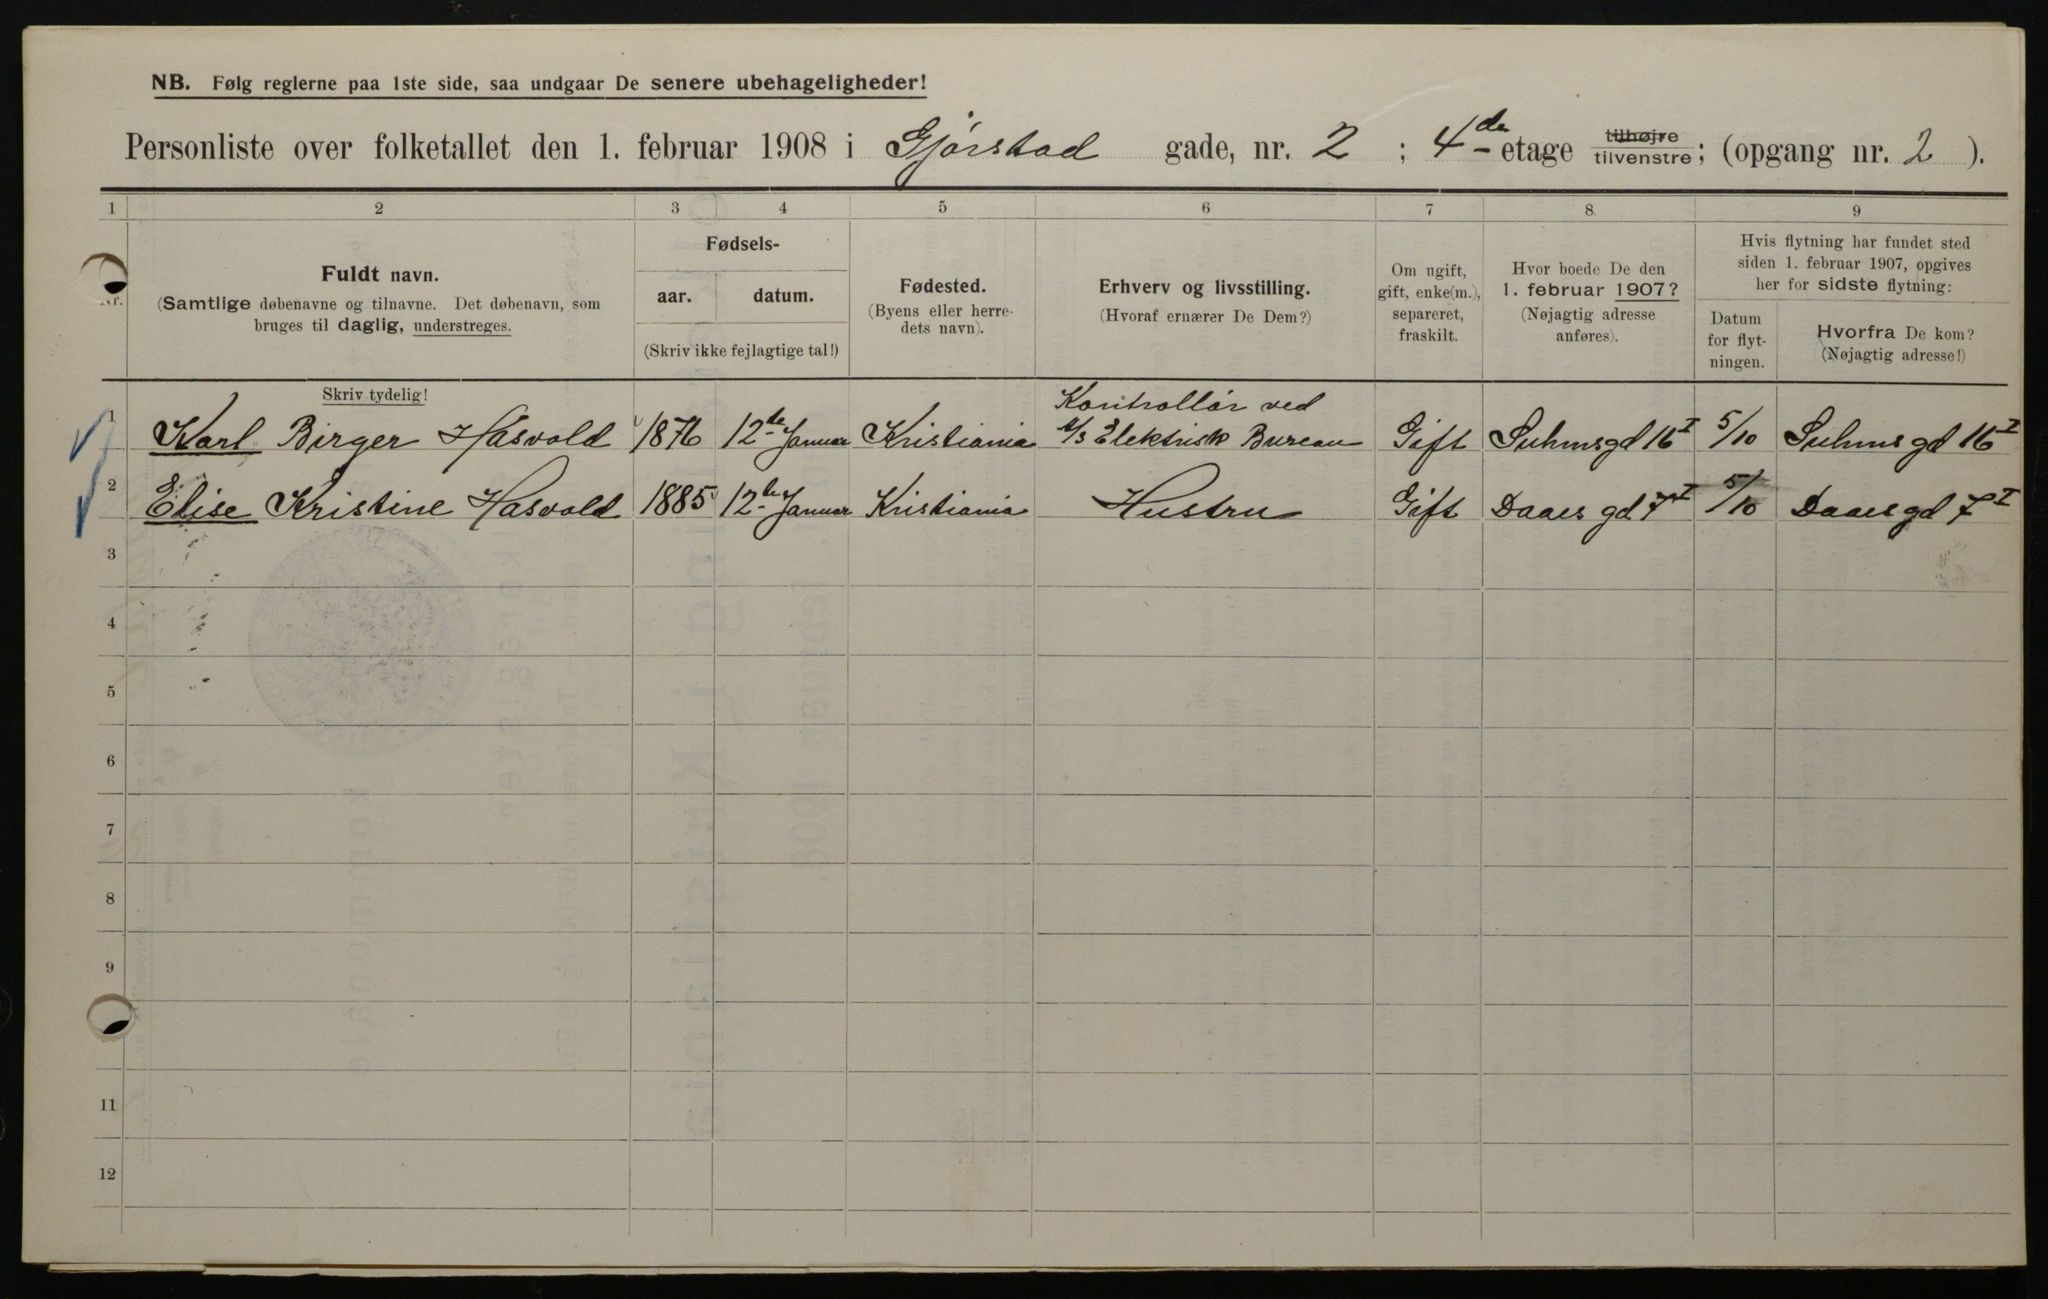 NB. Følg reglerne paa 1ste side, saa undgaar De senere ubehageligheder!
Personliste over folketallet den 1. februar 1908 i Gjørstad gade, nr. 2 ; 4de etage tilhøjre tilvenstre; (opgang nr. 2 ).
1 2 3 4 5 6 7 8. 9
Nr.
Fuldt navn.
(Samtlige døbenavne og tilnavne. Det døbenavn, som
bruges til daglig, understreges.
Skriv tydelig!
Fødsels-
aar. datum.
(Skriv ikke fejlagtige tal!)
Fødested.
(Byens eller herre-
dets navn).
Erhverv og livsstilling.
(Hvoraf ernærer De Dem?)
Om ugift,
gift, enke(m.),
separeret,
fraskilt.
Hvor boede De den
1. februar 1907?
(Nøjagtig adresse
anføres).
Hvis flytning har fundet sted
siden 1. februar 1907, opgives
her for sidste flytning:
Datum
for flyt-
ningen.
Hvorfra De kom?
(Nøjagtig adresse!)
1 Karl Birger Hasvold 1876 12te Januar Kristiania Kontrollør ved
A/S Elektrisk Bureau Gift Suhmsgd 16 I 5/10 Suhms gd 16 I
2 Elise Kristine Hasvold 1885 12te Januar Kristiania Hustru Gift Daaes gd 7 I 5/10 Daaes gd 7 I
3
4
5
6
7
8
9
11
12